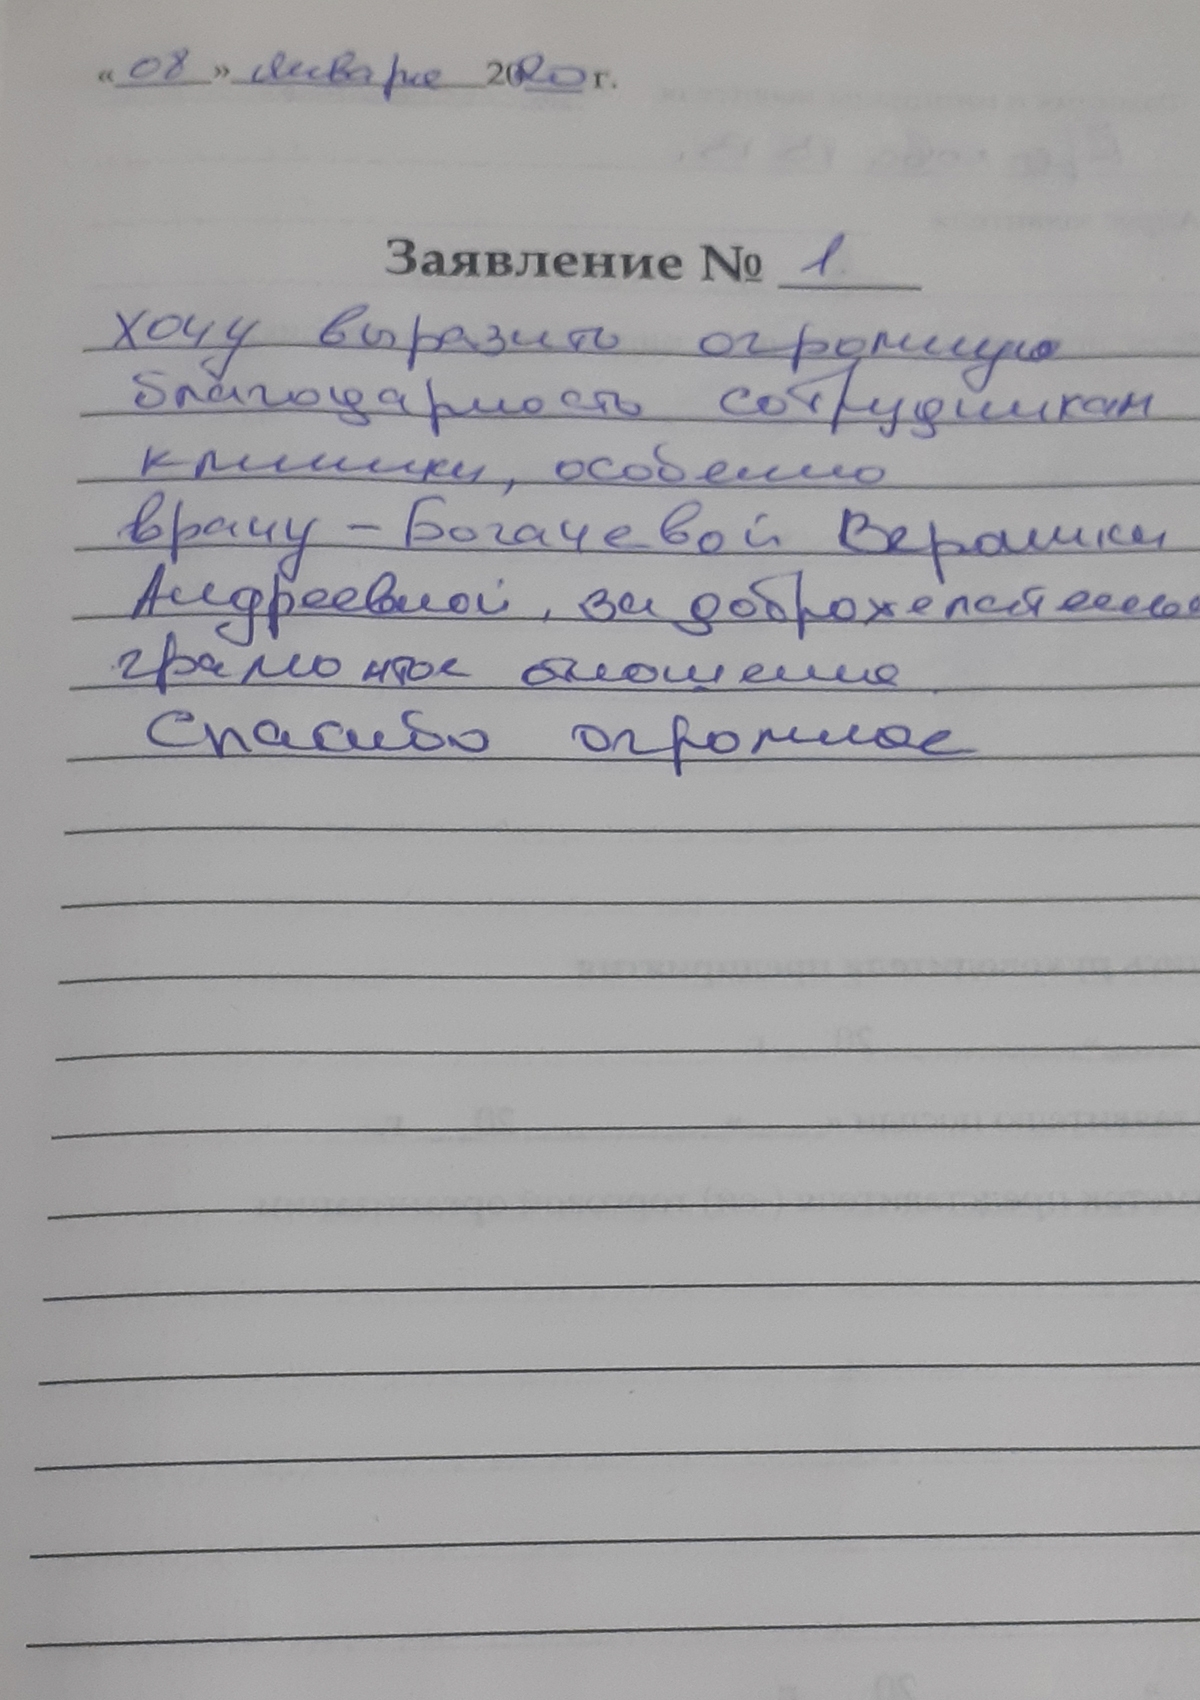 «08» января 2020 г.
Заявление № 1
Хочу выразить огромную
благодарность сотрудникам
клиники, особенно
врачу - Богачевой Вероники
Андреевной, за доброжелательное
грамотное отношение
Спасибо огромное